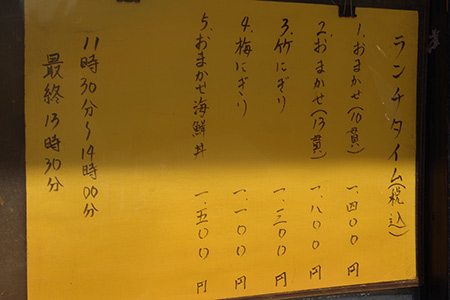 ランチタイム(税込)
1.おまかせ(10貫) 一、四〇〇円
2.おまかせ(13貫) 一、八〇〇円
3.竹にぎり 一、三〇〇円
4.梅にぎり 一、一〇〇円
5.おまかせ海鮮丼 一、五〇〇円
11時30分~14時00分
最終13時30分